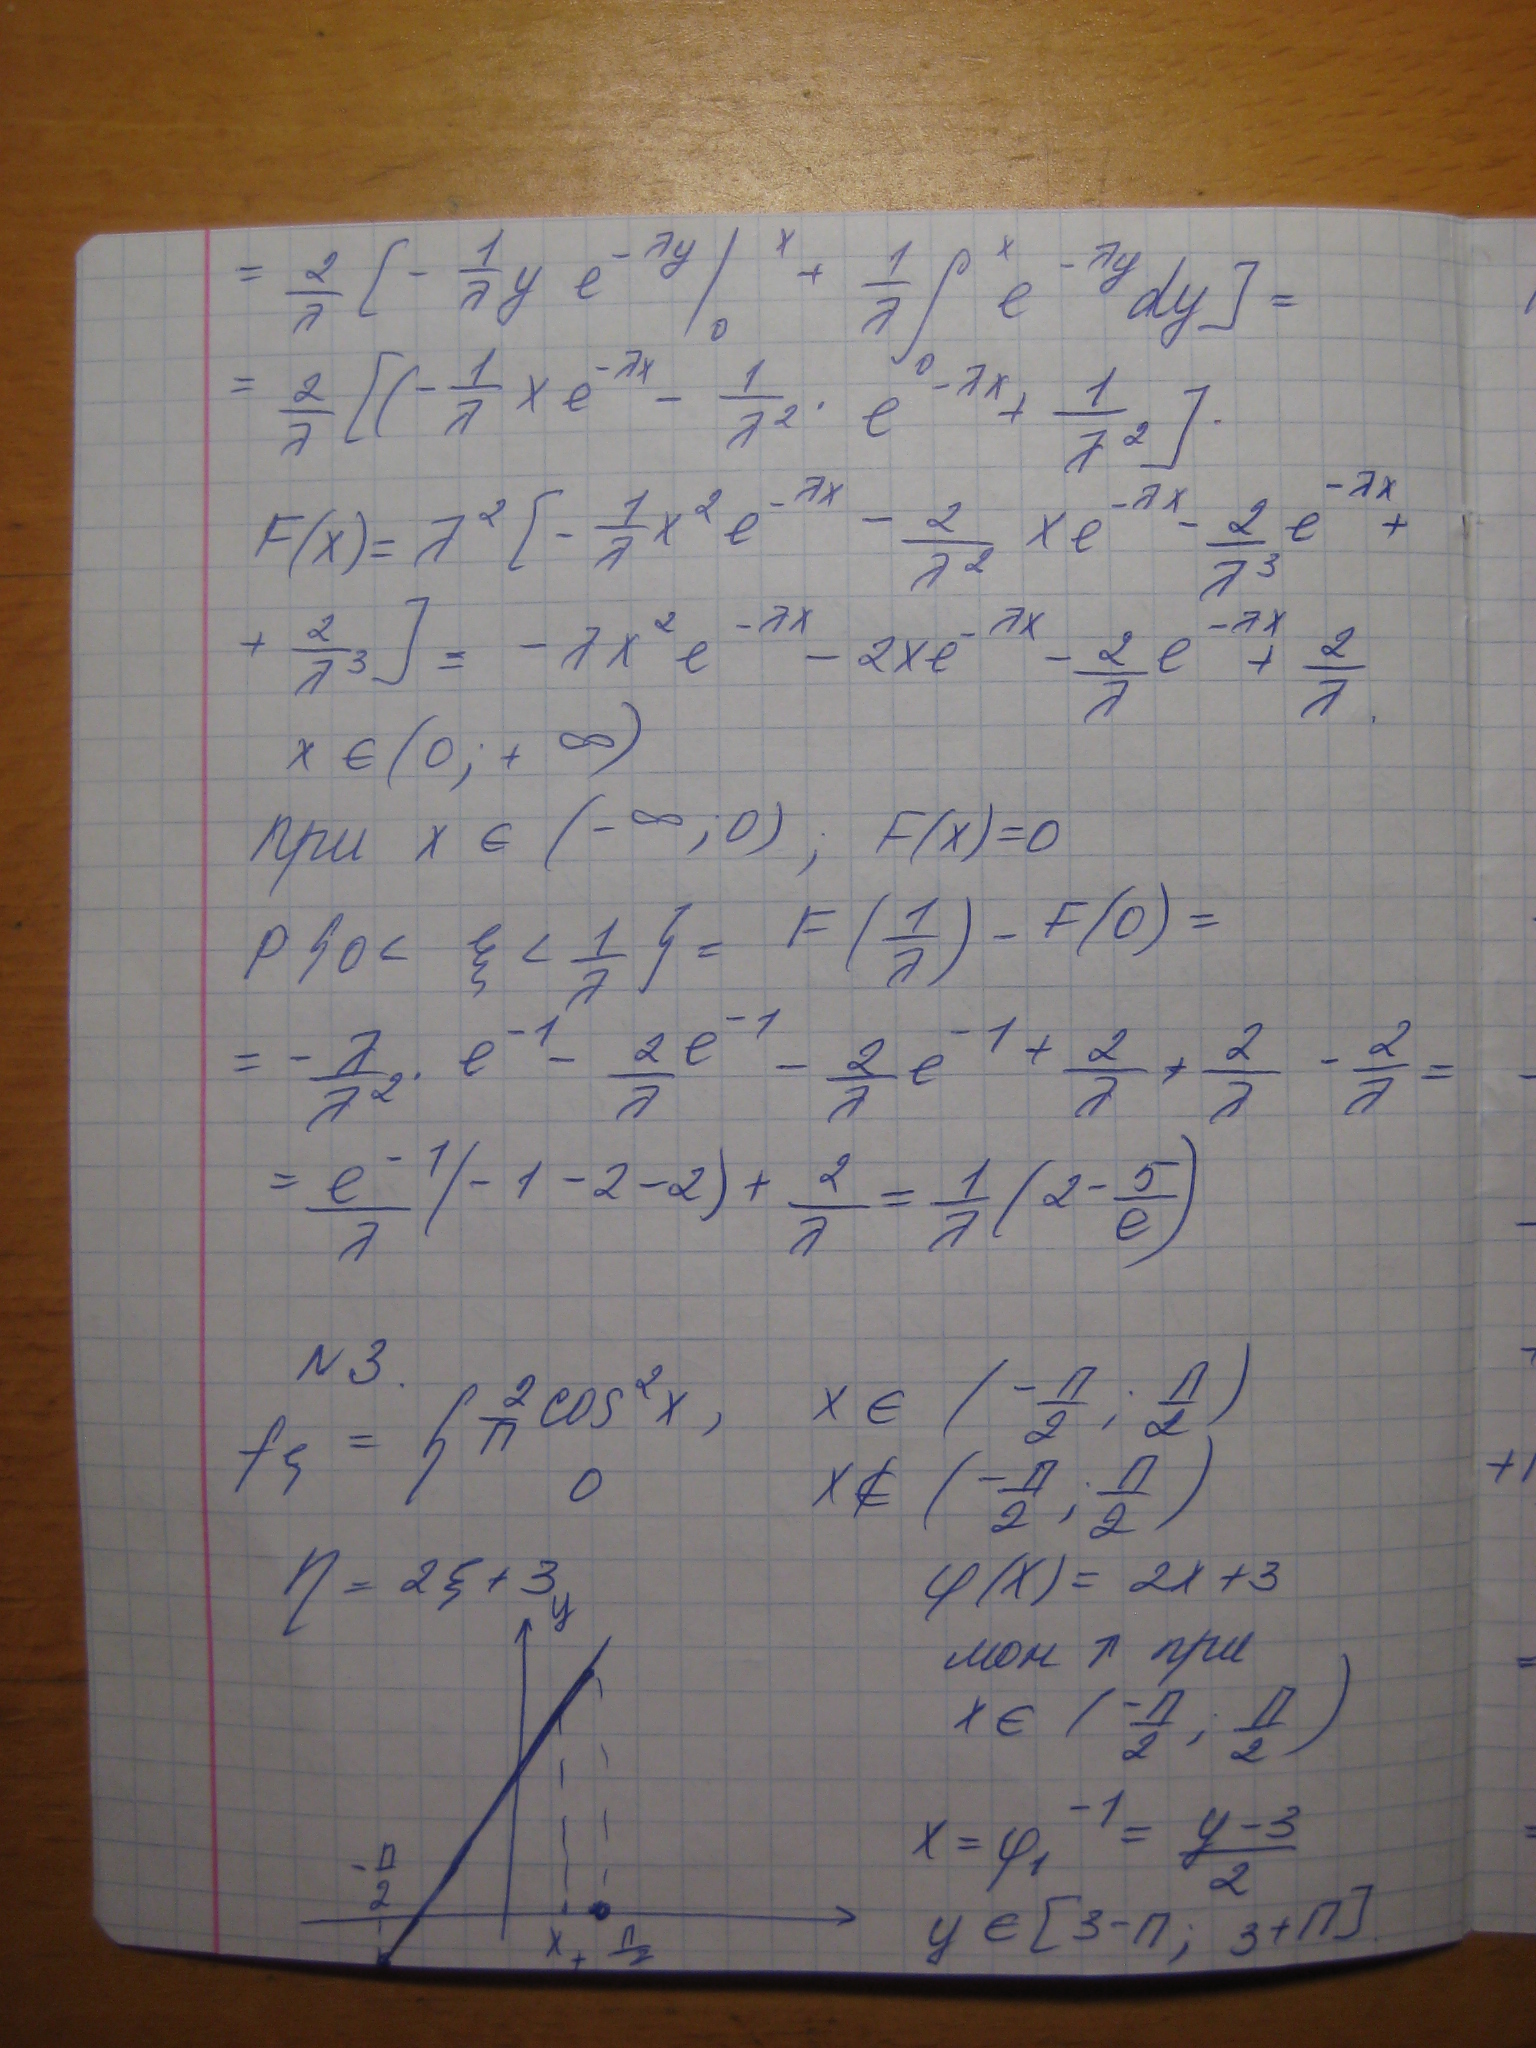 = 2/λ [ - 1/λ y e^{-λy} |_0^x + 1/λ ∫_0^x e^{-λy} dy ] =
= 2/λ [ ( - 1/λ x e^{-λx} - 1/λ² · e^{-λx} + 1/λ² ] .
F(x) = λ² [ - 1/λ x² e^{-λx} - 2/λ² x e^{-λx} - 2/λ³ e^{-λx} +
+ 2/λ³ ] = - λ x² e^{-λx} - 2x e^{-λx} - 2/λ e^{-λx} + 2/λ .
x ∈ (0; + ∞)
при x ∈ (-∞; 0) ; F(x) = 0
P{0 < ξ < 1/λ} = F(1/λ) - F(0) =
= - λ/λ² · e^{-1} - 2/λ e^{-1} - 2/λ e^{-1} + 2/λ + 2/λ - 2/λ =
= e^{-1}/λ (-1 - 2 - 2) + 2/λ = 1/λ (2 - 5/e)
N3.
f_ξ = { 2/π cos² x , x ∈ (-π/2 ; π/2)
0 x ∉ (-π/2 ; π/2)
η = 2ξ + 3 φ(x) = 2x + 3
y
мон ↑ при
x ∈ (-π/2 ; π/2)
x = φ₁^{-1} = (y - 3)/2
-π/2
y ∈ [3 - π; 3 + π]
x + π/2